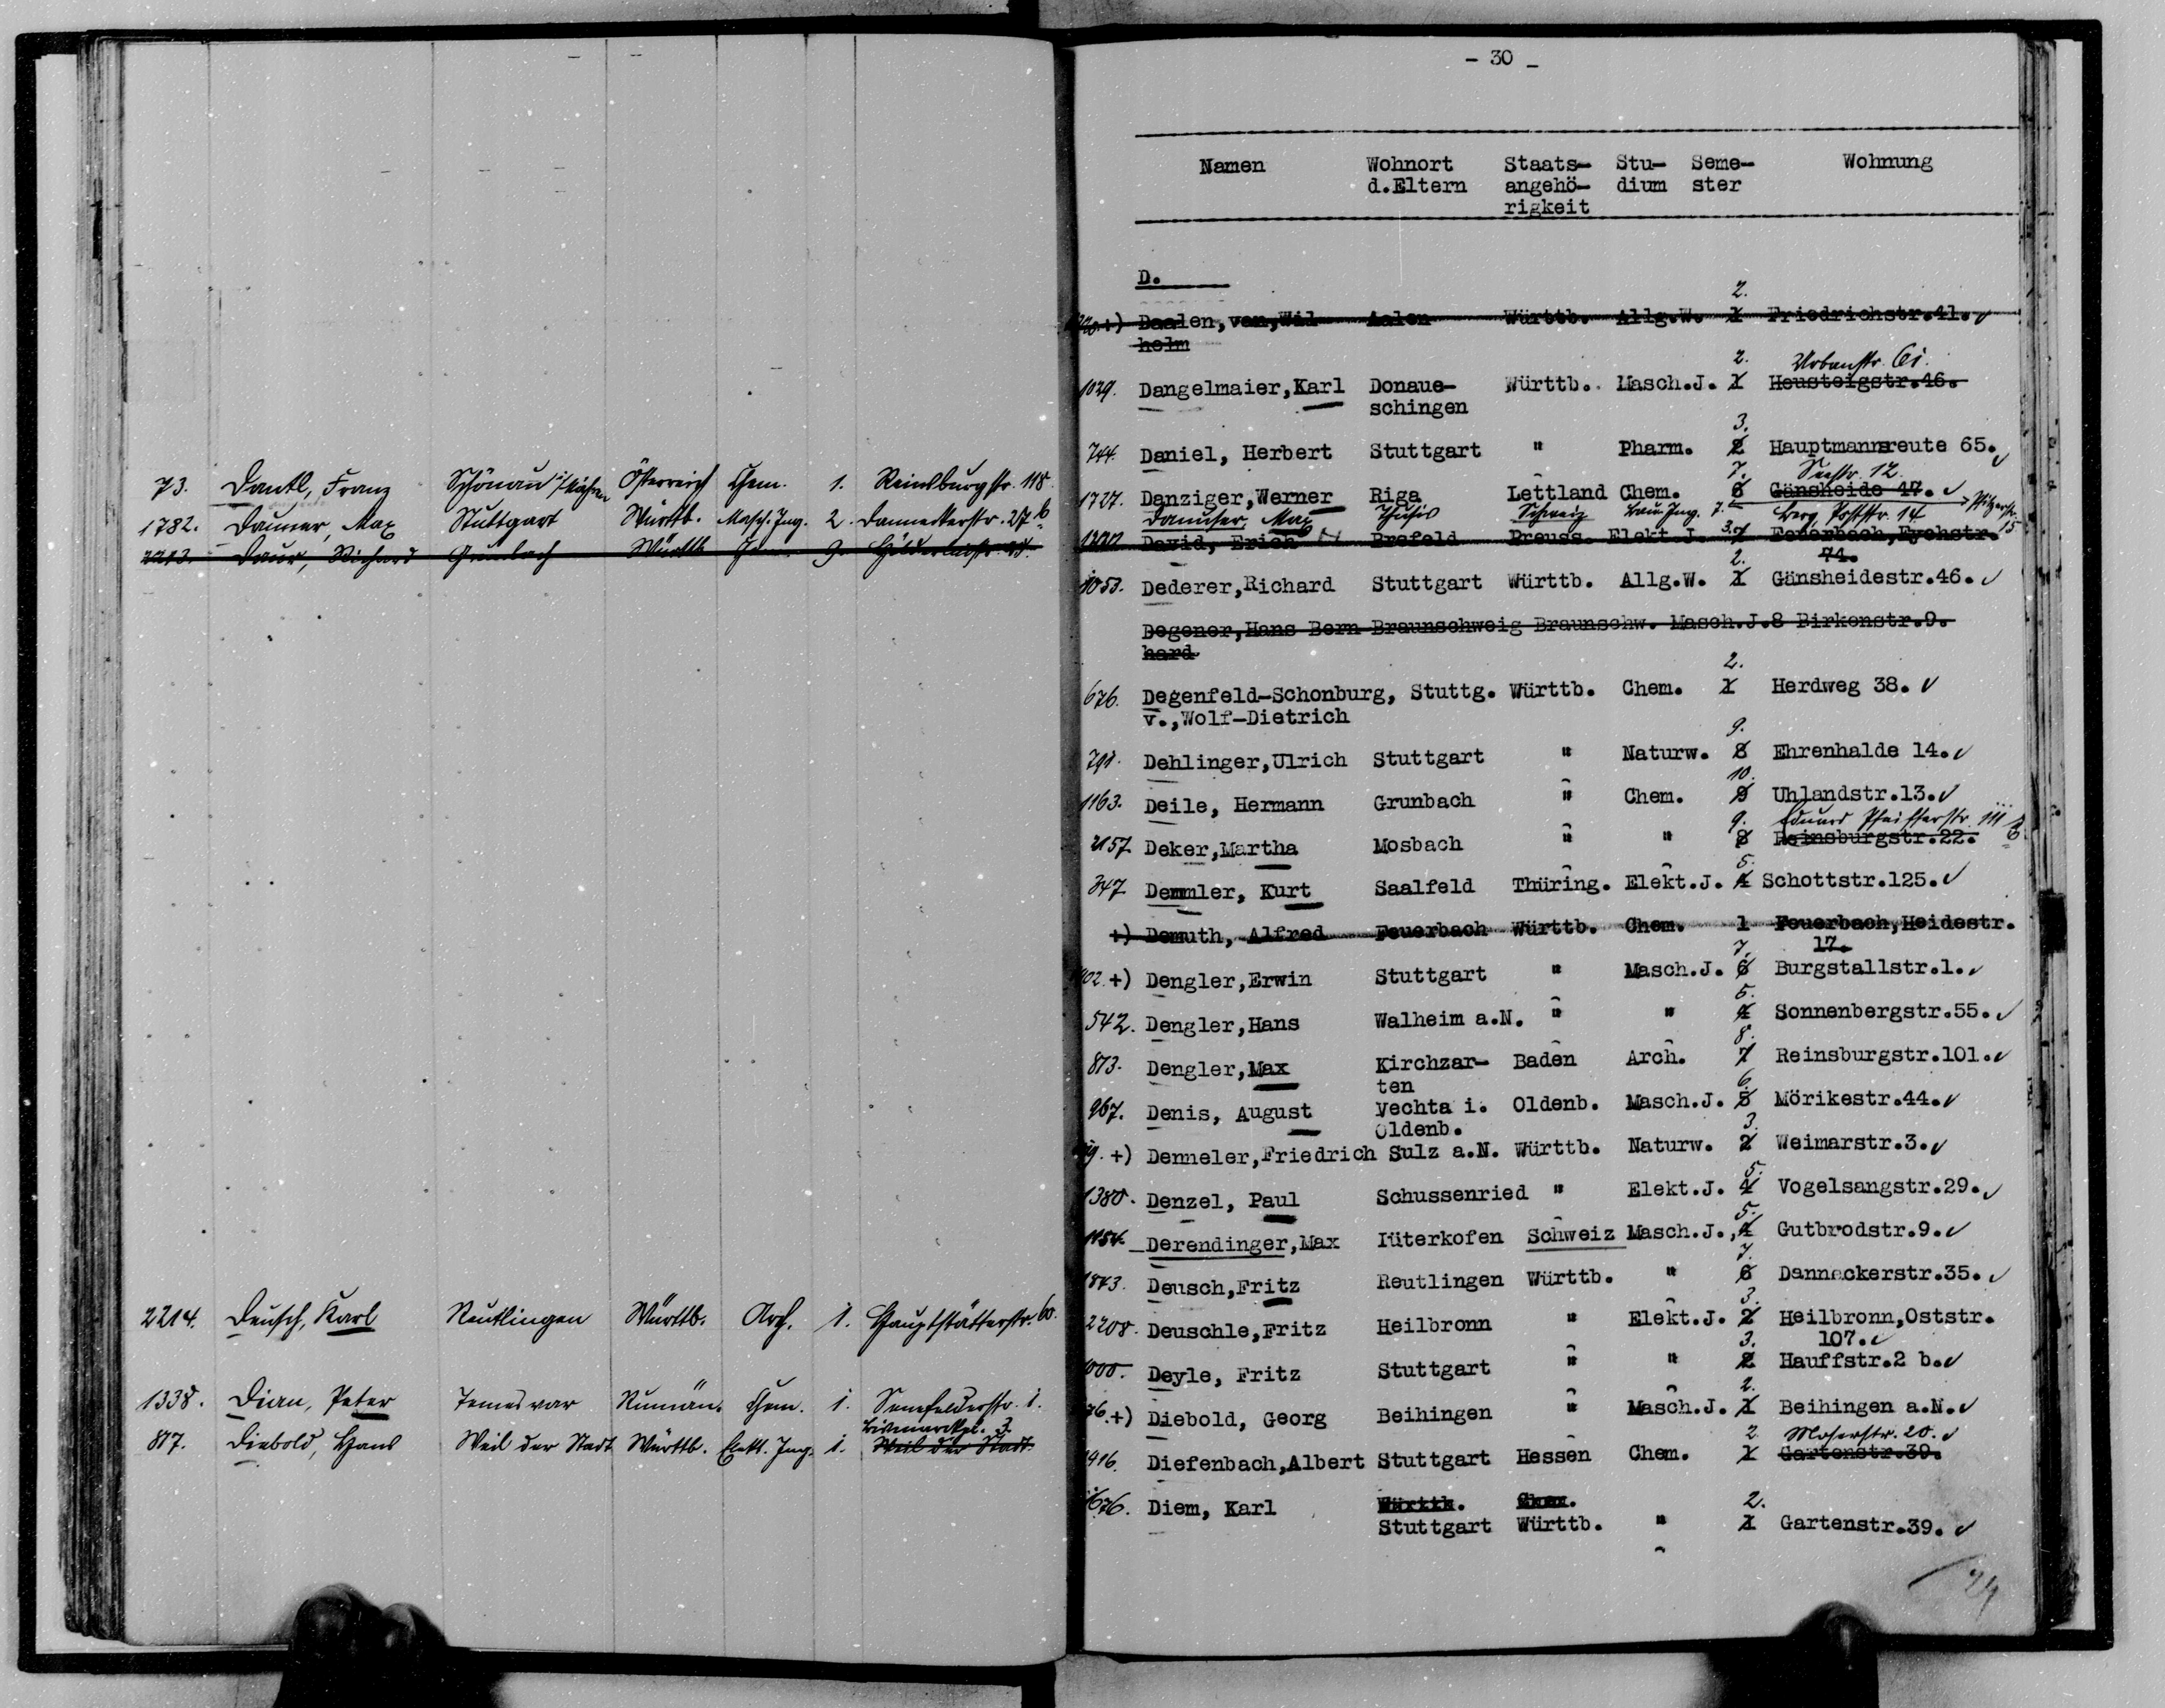 73. Dantl, Franz Schönau i/Mähren Österreich Chem. 1. Reinsburgstr. 118.
1782. Daumer, Max Stuttgart Württb. Masch. Ing. 2. Danneckerstr. 27 b
2213. Daur, Richard Grunbach Württb. 9. Hölderlinstr.
2214. Deusch, Karl Reutlingen Württb. Arch. 1. Hauptstätterstr. 60.
1338. Dian, Peter Temesvar Rumän. Chem. 1. Senefelderstr. 1.
Bismarckpl. 3
817. Diebold, Hans Weil der Stadt Württb. Elekt. Ing. 1. Weil der Stadt
- 30 -
Namen Wohnort Staats- Stu- Seme- Wohnung
d.Eltern angehö- dium ster
rigkeit
D.
2.
+) Daalen,van,Wil Aalen Württb. Allg.W. 1 Friedrichstr.41.
helm
2. Urbanstr. 61.
1029. Dangelmaier,Karl Donaue- Württb. Masch.J. 1 Heusteigstr.46.
schingen
3.
744. Daniel, Herbert Stuttgart " Pharm. 2 Hauptmannsreute 65.
7. Seestr. 12.
1727. Danziger,Werner Riga Lettland Chem. 6 Gänsheide 47.
Danuser, Max Thusis Schweiz Bau-Ing. 7. Berg, Poststr. 14
David, Erich Brefeld Preuss. Elekt.J. 3. Feuerbach,Eychstr.
2. 74.
1053. Dederer,Richard Stuttgart Württb. Allg.W. 1 Gänsheidestr.46.
Degener,Hans Bern Braunschweig Braunschw. Masch.J.8 Birkenstr.9.
hard
2.
676. Degenfeld-Schonburg, Stuttg. Württb. Chem. 1 Herdweg 38.
v.,Wolf-Dietrich
9.
791. Dehlinger,Ulrich Stuttgart " Naturw. 8 Ehrenhalde 14.
10.
1163. Deile, Hermann Grunbach " Chem. 9 Uhlandstr.13.
9. Eduard Pfeifferstr. 111
2157 Deker,Martha Mosbach " " 8 Reinsburgstr.22.
5.
347 Demmler, Kurt Saalfeld Thüring. Elekt.J. 4 Schottstr.125.
+) Demuth, Alfred Feuerbach Württb. Chem. 1 Feuerbach,Heidestr.
7. 17.
+) Dengler,Erwin Stuttgart " Masch.J. 6 Burgstallstr.1.
5.
542. Dengler,Hans Walheim a.N. " " 4 Sonnenbergstr.55.
8.
873. Dengler,Max Kirchzar- Baden Arch. 7 Reinsburgstr.101.
ten 6.
967. Denis, August Vechta i. Oldenb. Masch.J. 5 Mörikestr.44.
Oldenb. 3.
+) Denneler,Friedrich Sulz a.N. Württb. Naturw. 2 Weimarstr.3.
5.
1380. Denzel, Paul Schussenried " Elekt.J. 4 Vogelsangstr.29.
5.
1154. Derendinger,Max Iüterkofen Schweiz Masch.J., 4 Gutbrodstr.9.
7.
1843. Deusch,Fritz Reutlingen Württb. " 6 Danneckerstr.35.
3.
2208. Deuschle,Fritz Heilbronn " Elekt.J. 2 Heilbronn,Oststr.
3. 107.
Deyle, Fritz Stuttgart " " 2 Hauffstr.2 b.
2.
+) Diebold, Georg Beihingen " Masch.J. 1 Beihingen a.N.
2 Moserstr. 20.
1416. Diefenbach,Albert Stuttgart Hessen Chem. 1 Gartenstr.39.
1676. Diem, Karl Württb. Chem. 2.
Stuttgart Württb. " 1 Gartenstr.39.
24